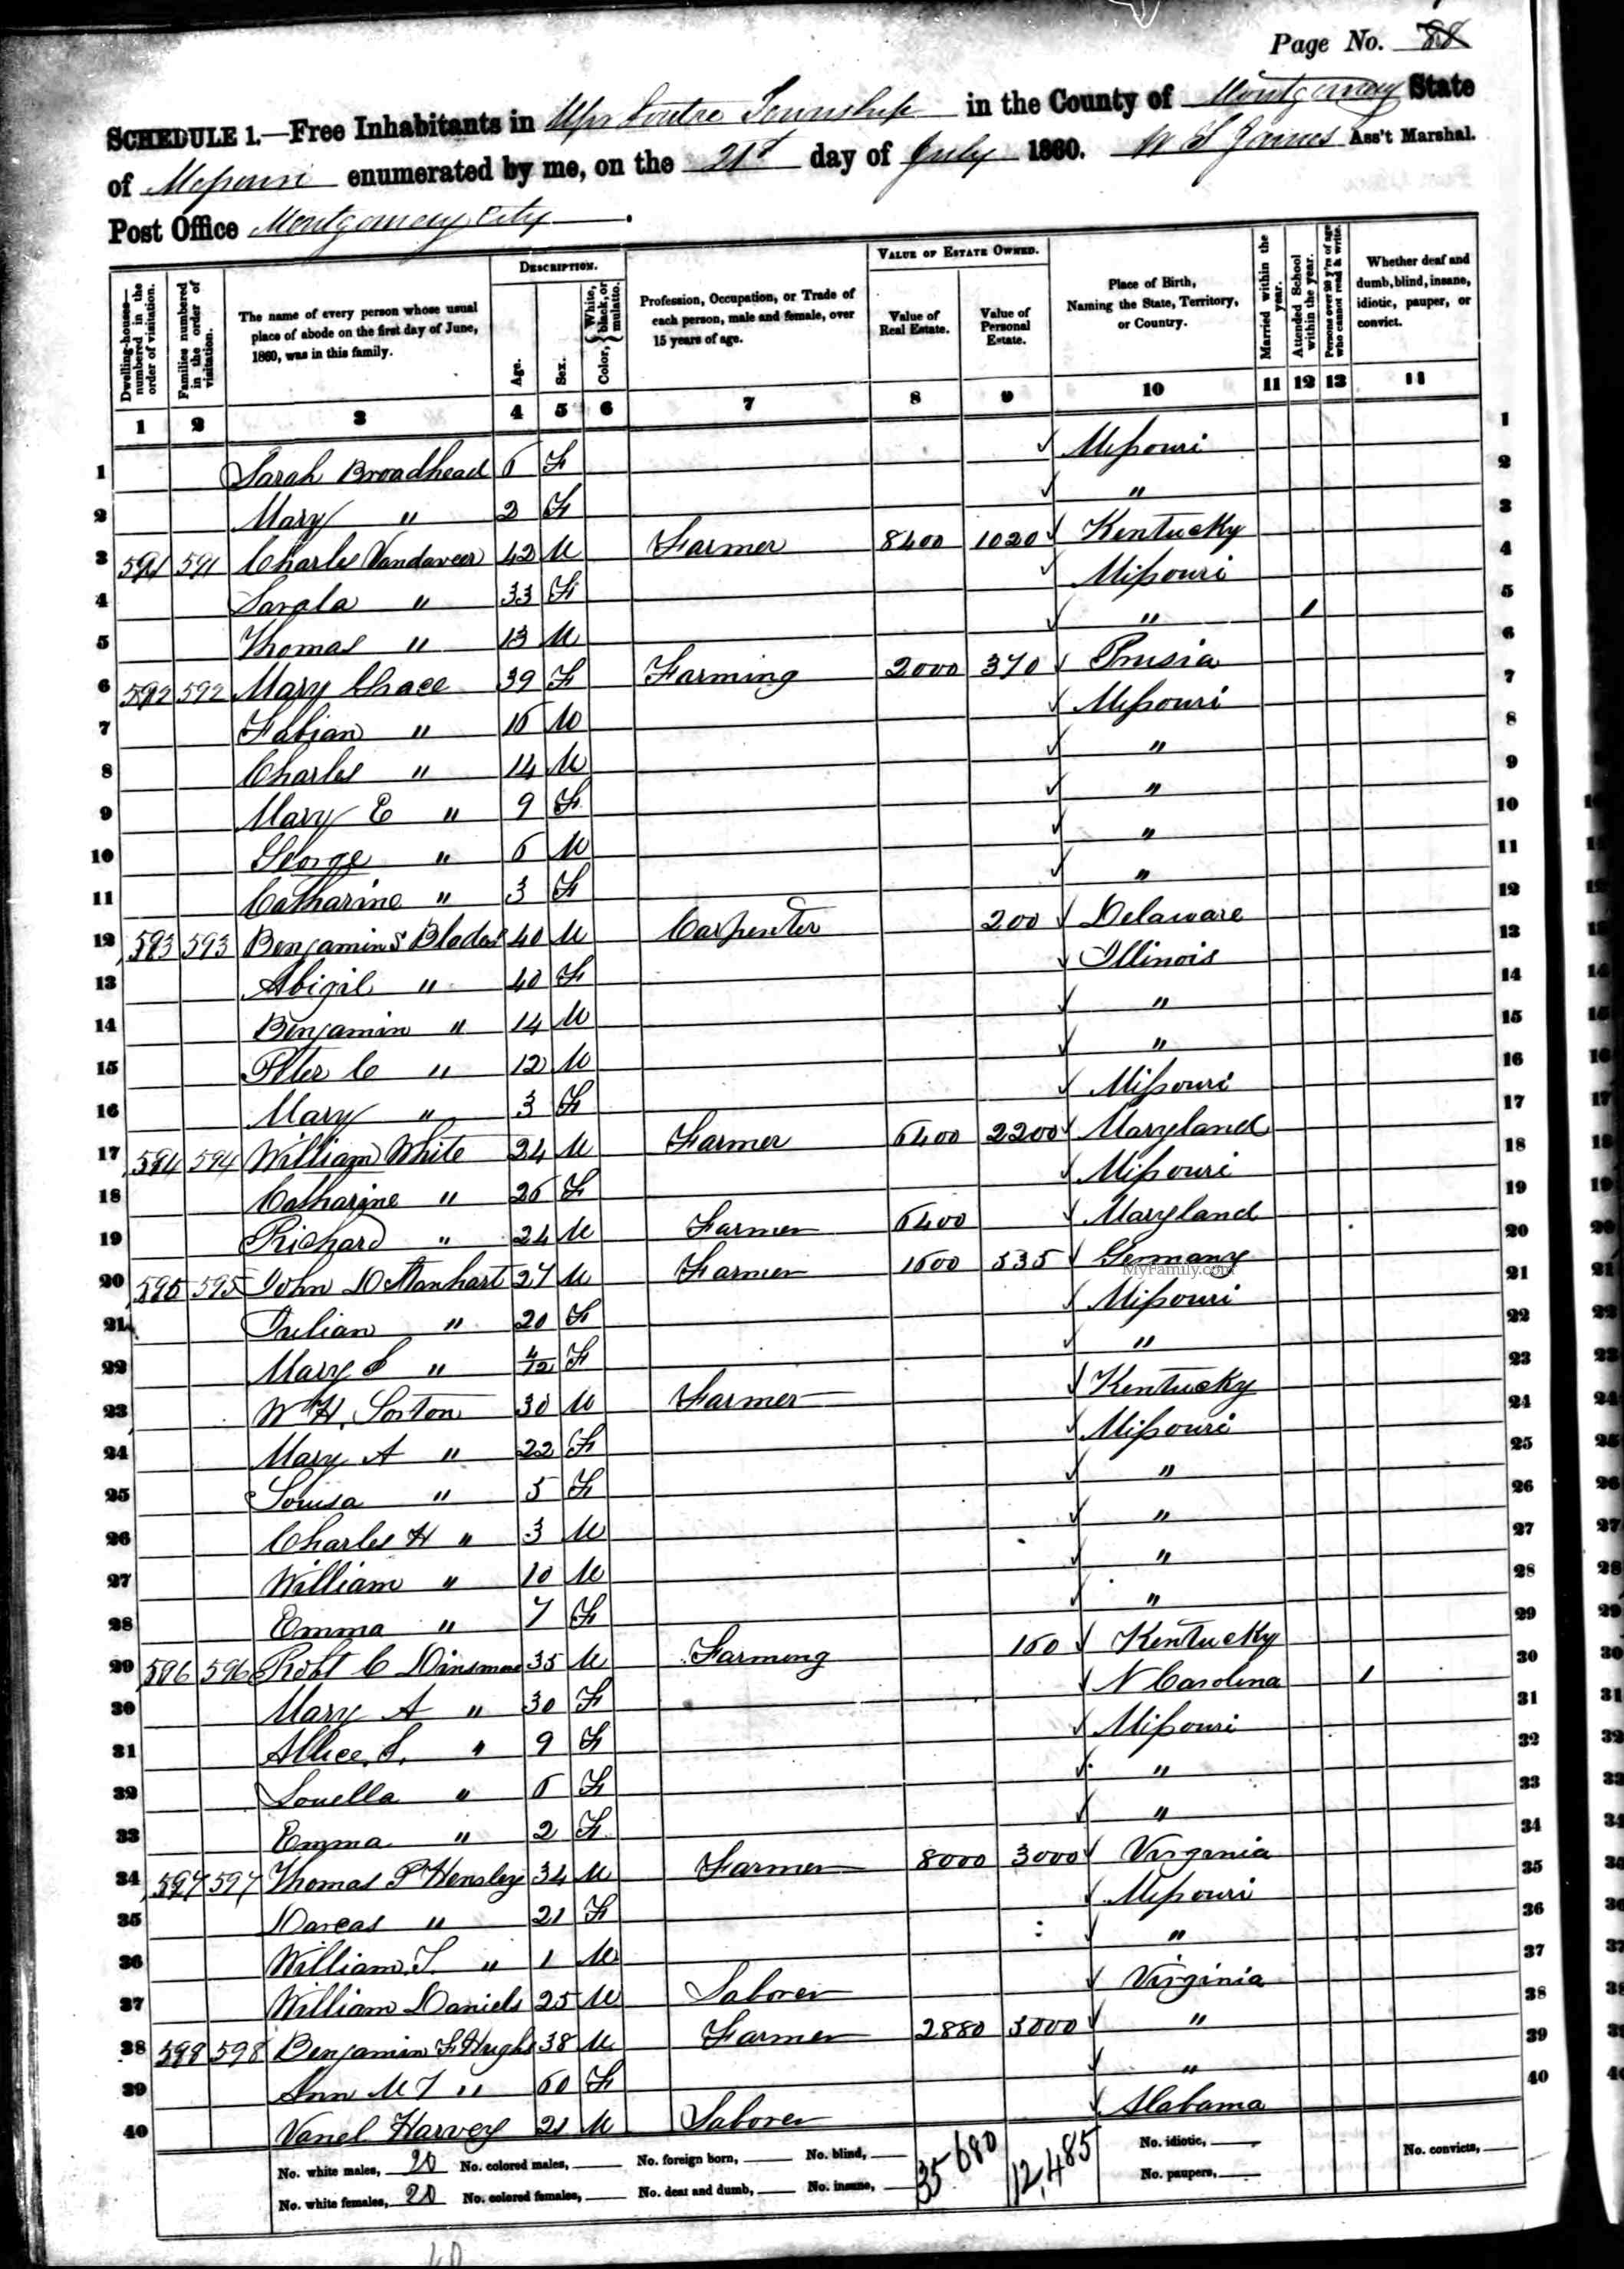 Page No. 88
SCHEDULE 1.—Free Inhabitants in Upr Loutre Township in the County of Montgomery State
of Missouri enumerated by me, on the 21st day of July 1860. W S James Ass't Marshal.
Post Office Montgomery City
Dwelling-houses—numbered in the order of visitation.
Families numbered in the order of visitation.
The name of every person whose usual place of abode on the first day of June, 1860, was in this family.
DESCRIPTION.
Age.
Sex.
Color, { White, black, or mulatto.
Profession, Occupation, or Trade of each person, male and female, over 15 years of age.
VALUE OF ESTATE OWNED.
Value of Real Estate.
Value of Personal Estate.
Place of Birth, Naming the State, Territory, or Country.
Married within the year.
Attended School within the year.
Persons over 20 y'rs of age who cannot read & write.
Whether deaf and dumb, blind, insane, idiotic, pauper, or convict.
1 2 3 4 5 6 7 8 9 10 11 12 13 14
1 Sarah Broadhead 6 F Missouri 1
2 Mary " 2 F " 2
3 591 591 Charles Vandaveer 42 M Farmer 8400 1020 Kentucky 3
4 Sarala " 33 F Missouri 4
5 Thomas " 13 M " / 5
6 592 592 Mary Chace 39 F Farming 2000 370 Prusia 6
7 Fabian " 16 M Missouri 7
8 Charles " 14 M " 8
9 Mary E " 9 F " 9
10 George " 6 M " 10
11 Catharine " 3 F " 11
12 593 593 Benjamin S Blades 40 M Carpenter 200 Delaware 12
13 Abigil " 40 F Illinois 13
14 Benjamin " 14 M " 14
15 Peter C " 12 M " 15
16 Mary " 3 F Missouri 16
17 594 594 William White 24 M Farmer 6400 2200 Maryland 17
18 Catharine " 26 F Missouri 18
19 Richard " 24 M Farmer 6400 Maryland 19
20 595 595 John 27 M Farmer 1600 535 Germany 20
MyFamily.com
21 Julian " 20 F Missouri 21
22 Mary S " 4/12 F " 22
23 W H. Sorton 30 M Farmer Kentucky 23
24 Mary A " 22 F Missouri 24
25 Louisa " 5 F " 25
26 Charles H " 3 M " 26
27 William " 10 M " 27
28 Emma " 7 F " 28
29 596 596 Robt C Dinsmore 35 M Farming 160 Kentucky 29
30 Mary A " 30 F N Carolina / 30
31 Allice S. " 9 F Missouri 31
32 Louella " 6 F " 32
33 Emma " 2 F " 33
34 597 597 Thomas P Hensley 34 M Farmer 8000 3000 Virginia 34
35 Darcas " 21 F Missouri 35
36 William T. " 1 M " 36
37 William Daniels 25 M Laborer Virginia 37
38 598 598 Benjamin F Hughs 38 M Farmer 2880 3000 " 38
39 Ann M T " 60 F " 39
40 Harvey 21 M Laborer Alabama 40
No. white males, 20 No. colored males, No. foreign born, No. blind, 35 680 12,485 No. idiotic, No. convicts,
No. white females, 20 No. colored females, No. deaf and dumb, No. insane, No. paupers,